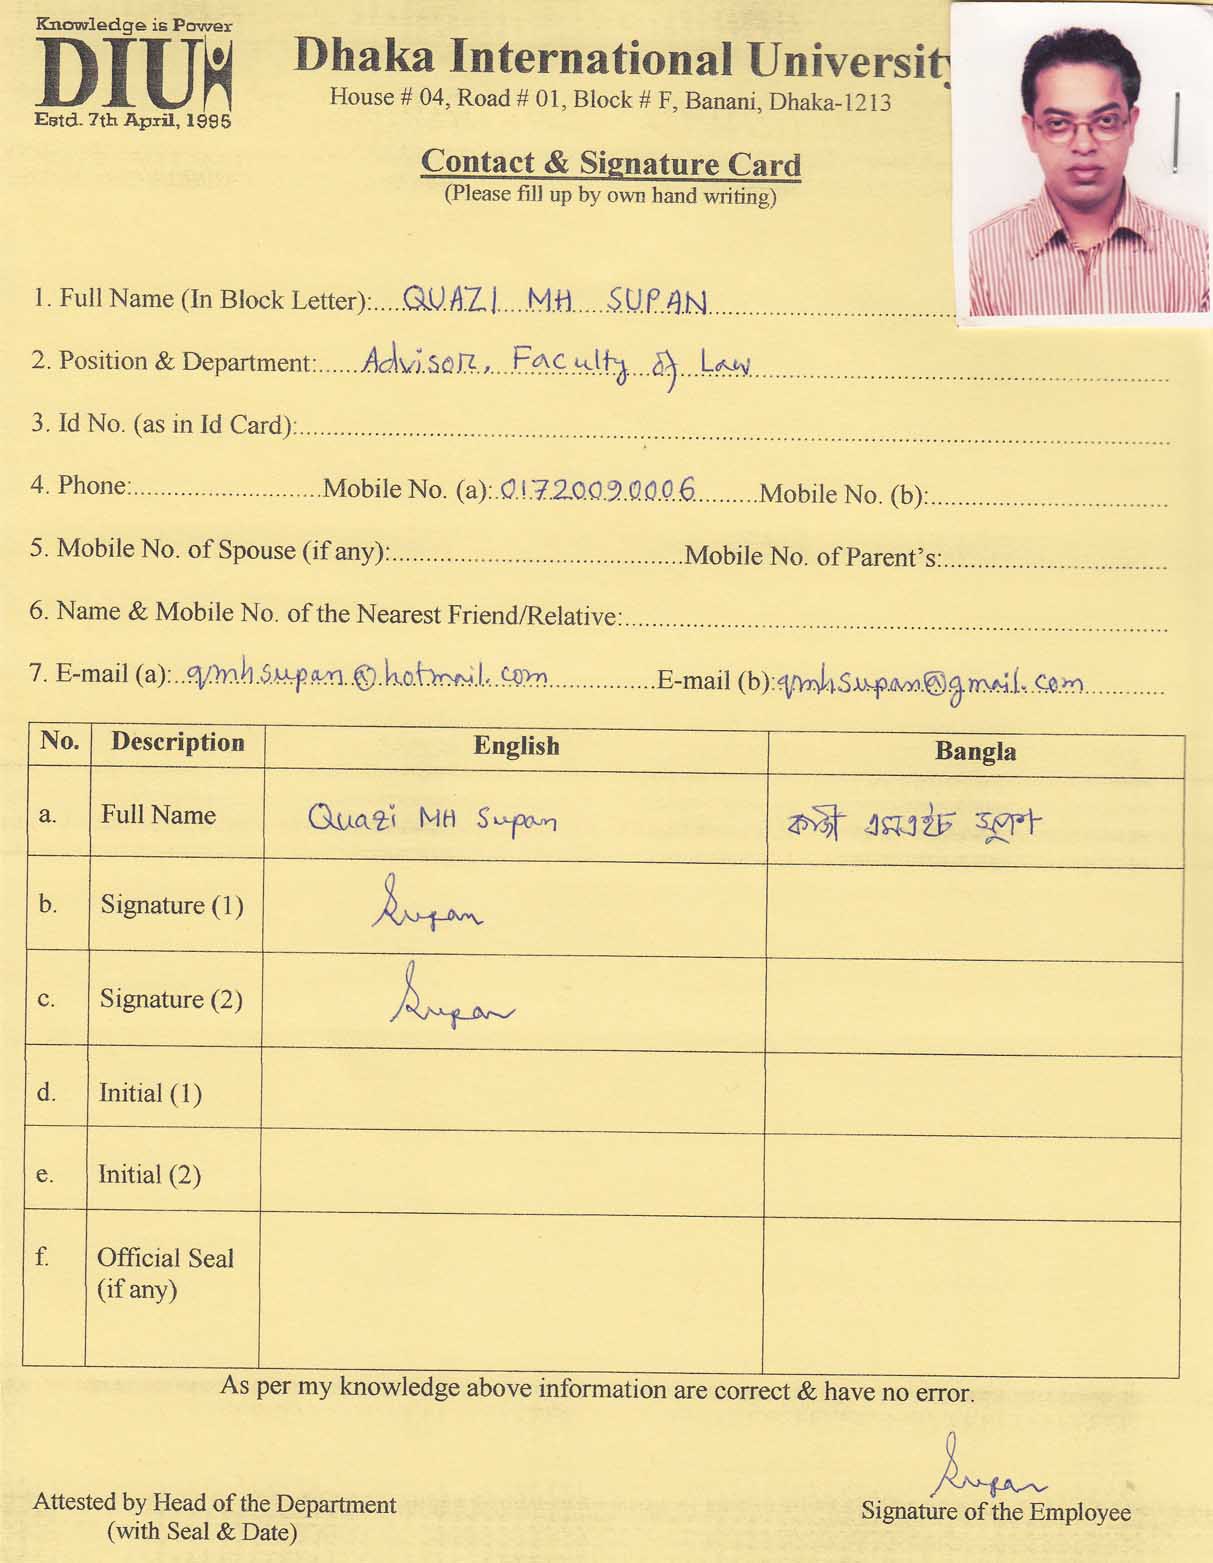 Knowledge is Power
DIU
Estd. 7th April, 1995
Dhaka International University
House # 04, Road # 01, Block # F, Banani, Dhaka-1213
Contact & Signature Card
(Please fill up by own hand writing)
1. Full Name (In Block Letter):....QUAZI MH SUPAN
2. Position & Department:.....Advisor, Faculty of Law
3. Id No. (as in Id Card):
4. Phone:..........Mobile No. (a): 01720090006 Mobile No. (b):
5. Mobile No. of Spouse (if any):..........Mobile No. of Parent's:
6. Name & Mobile No. of the Nearest Friend/Relative:
7. E-mail (a): qmhsupan@hotmail.com E-mail (b): qmhsupan@gmail.com
No. Description English Bangla
a. Full Name Quazi MH Supan কাজী এমএইচ সুপণ
b. Signature (1) Supan
c. Signature (2) Supan
d. Initial (1)
e. Initial (2)
f. Official Seal
(if any)
As per my knowledge above information are correct & have no error.
Supan
Attested by Head of the Department Signature of the Employee
(with Seal & Date)